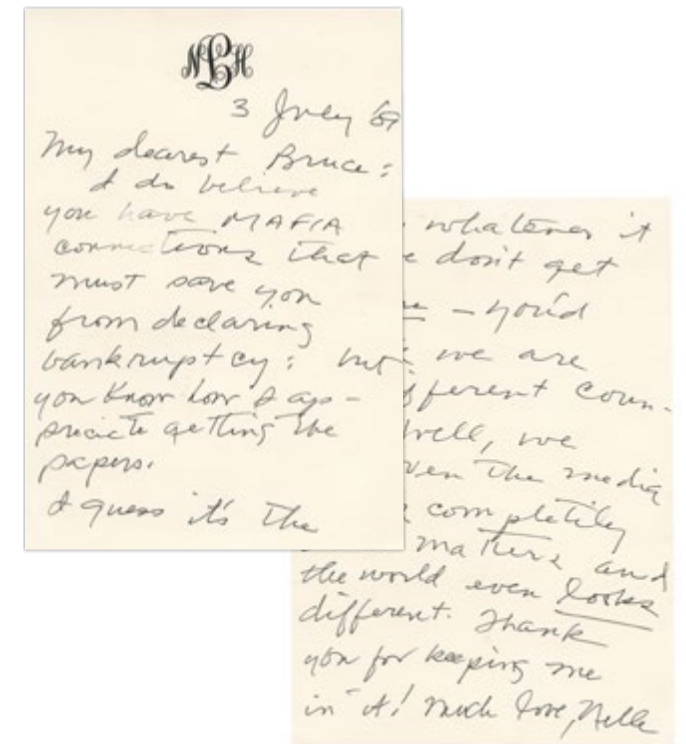 NLH
3 July '89
My dearest Bruce:
I do believe
you have MAFIA
connections that
must save you
from declaring
bankruptcy: but
you know how I ap-
preciate getting the
papers.
I guess it's the
whatever it
don't get
– you'd
we are
fferent coun-
Well, we
ven the media
completily
matters and
the world even looks
different. Thank
you for keeping me
in it! Much love, Nelle